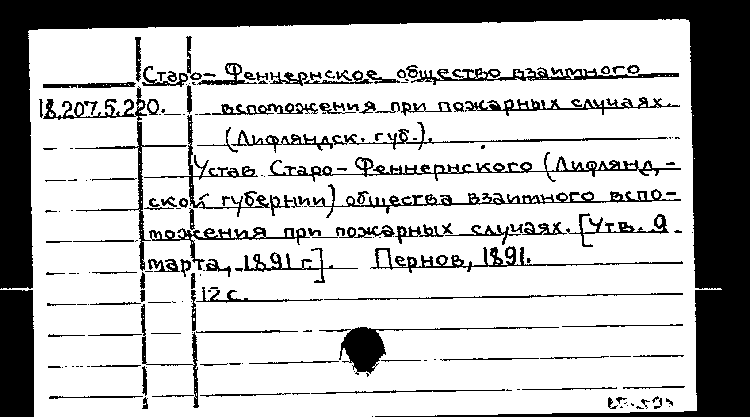 Старо-Феннернское общество взаимного
18.207.5.220. вспоможения при пожарных случаях.
(Лифляндск. губ.).
Устав Старо-Феннернского (Лифлянд,-
ской губернии) общества взаимного вспо-
можения при пожарных случаях. [Утв. 9
марта, 1891 г.]. Пернов, 1891.
12 с.